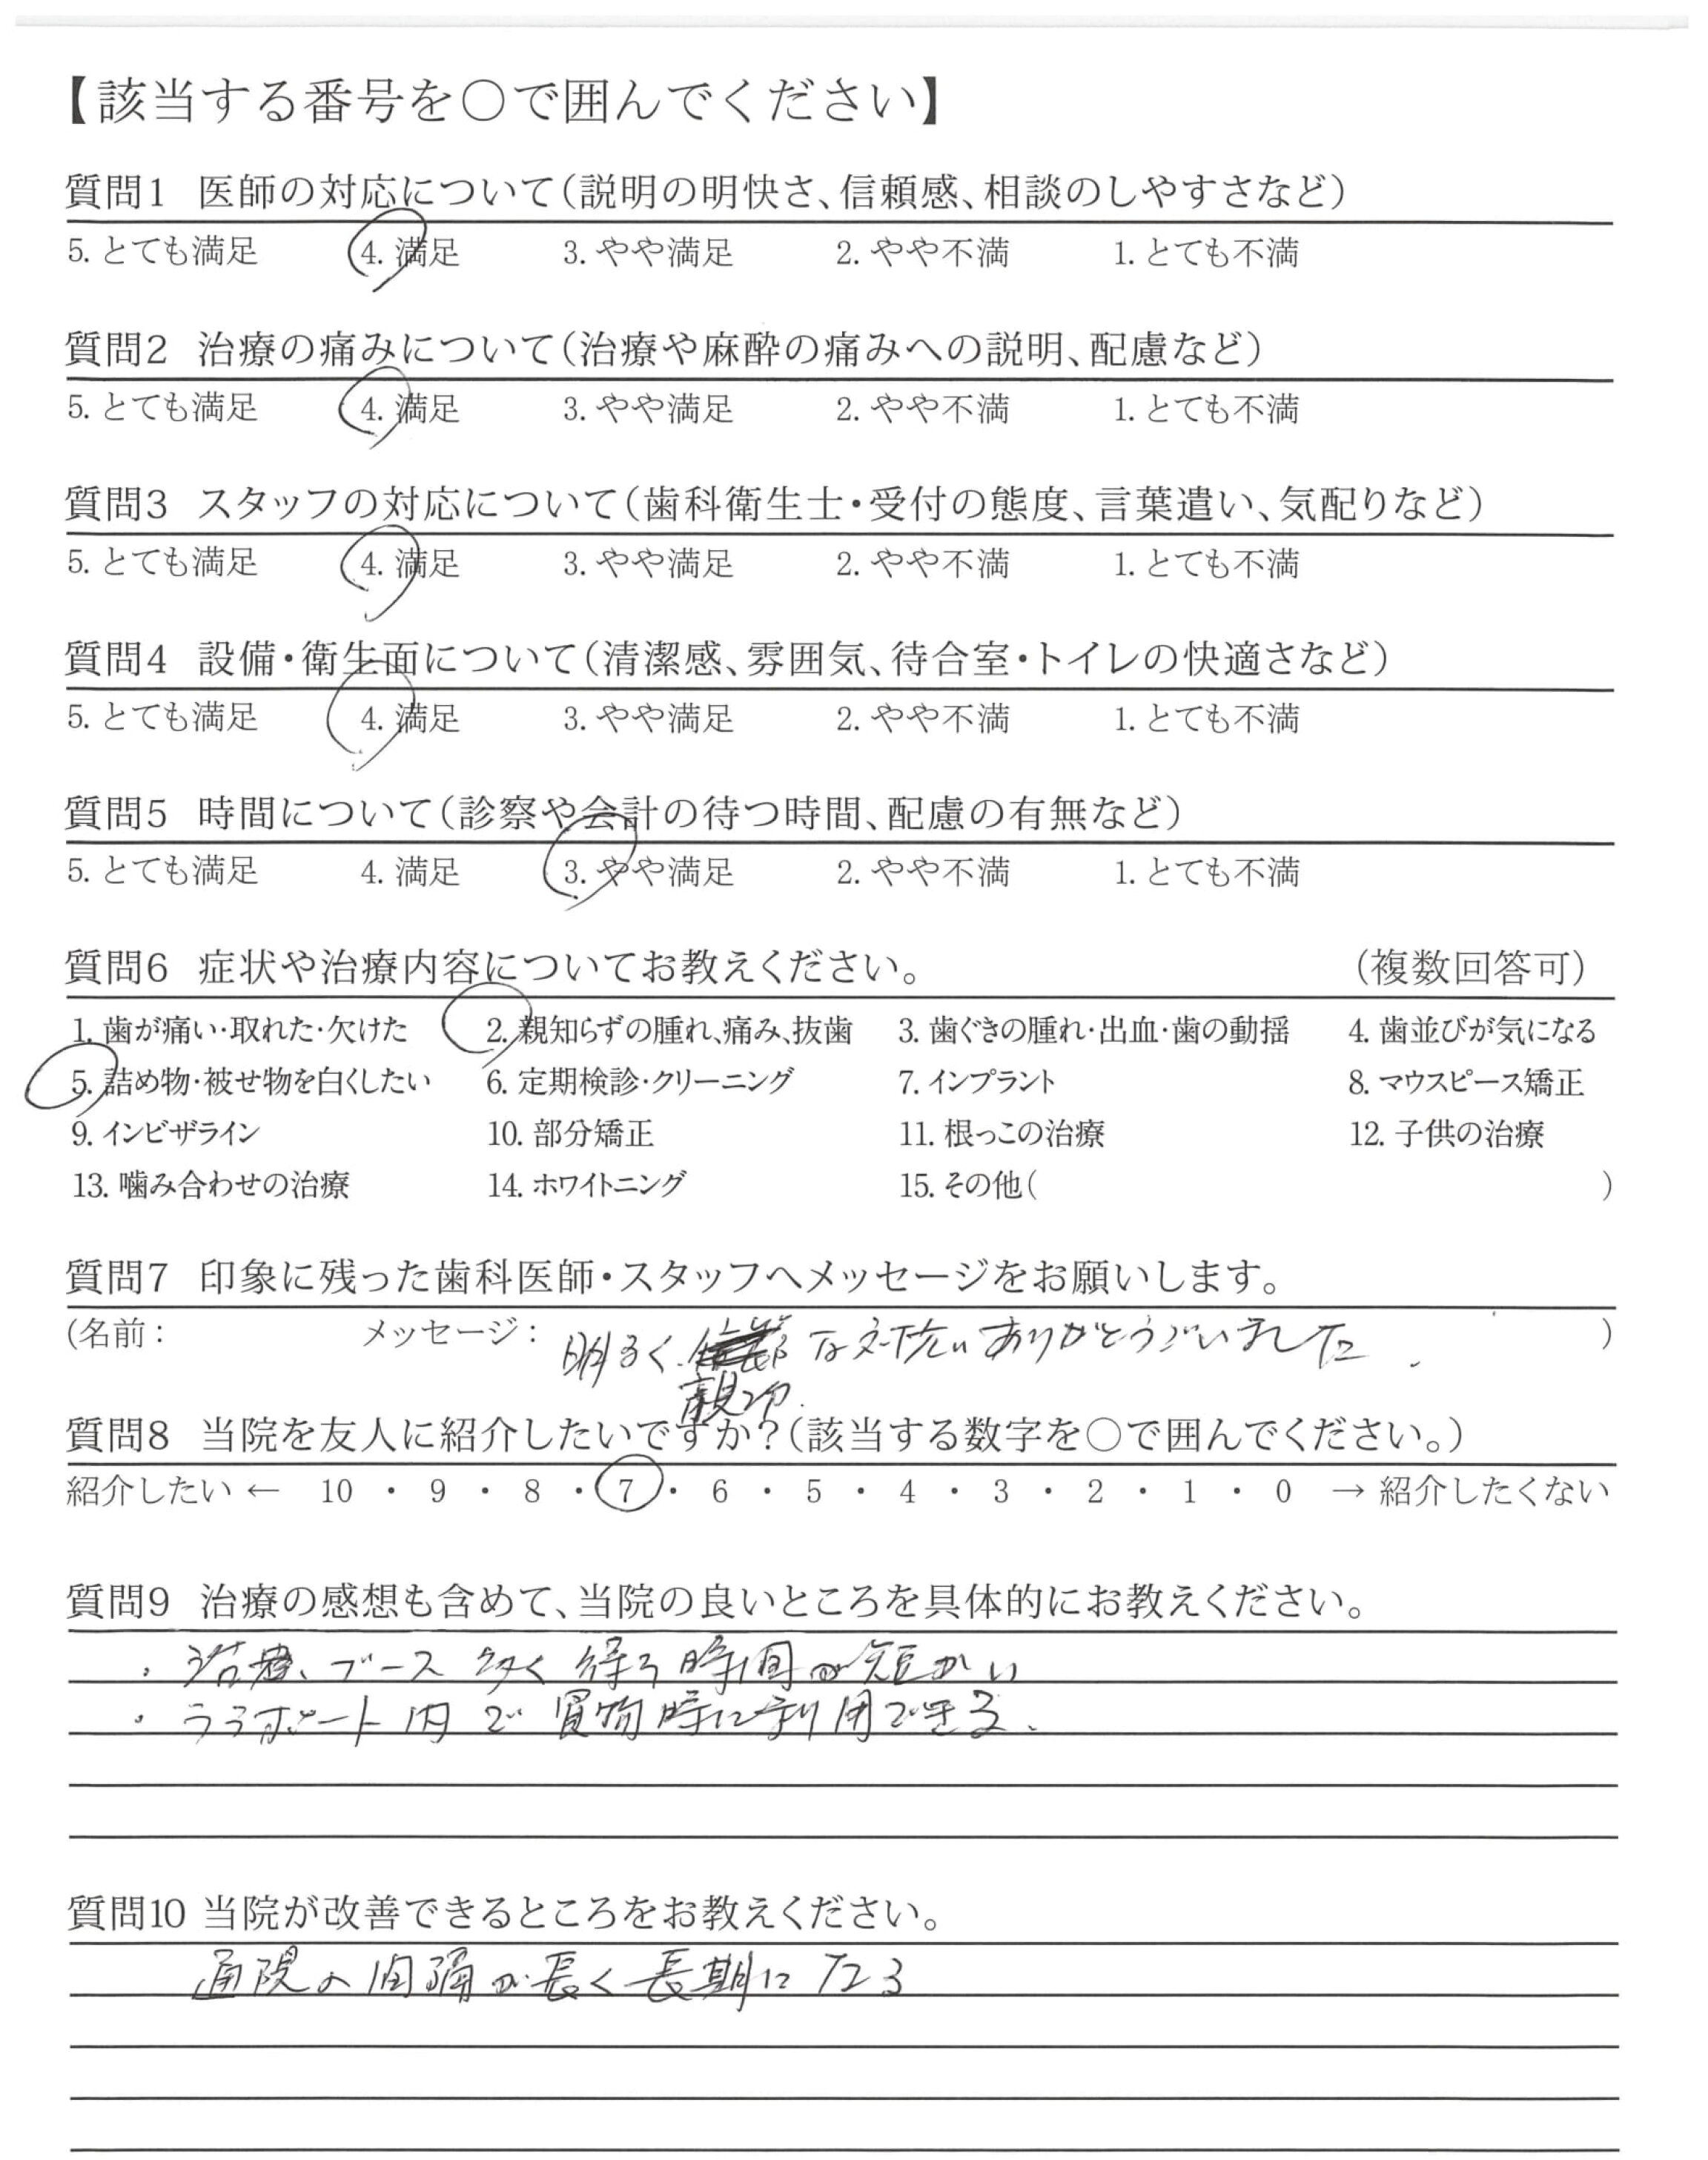 【該当する番号を○で囲んでください】
質問1 医師の対応について(説明の明快さ、信頼感、相談のしやすさなど)
5. とても満足 4. 満足 3. やや満足 2. やや不満 1. とても不満
質問2 治療の痛みについて(治療や麻酔の痛みへの説明、配慮など)
5. とても満足 4. 満足 3. やや満足 2. やや不満 1. とても不満
質問3 スタッフの対応について(歯科衛生士・受付の態度、言葉遣い、気配りなど)
5. とても満足 4. 満足 3. やや満足 2. やや不満 1. とても不満
質問4 設備・衛生面について(清潔感、雰囲気、待合室・トイレの快適さなど)
5. とても満足 4. 満足 3. やや満足 2. やや不満 1. とても不満
質問5 時間について(診察や会計の待つ時間、配慮の有無など)
5. とても満足 4. 満足 3. やや満足 2. やや不満 1. とても不満
質問6 症状や治療内容についてお教えください。 (複数回答可)
1. 歯が痛い・取れた・欠けた 2. 親知らずの腫れ、痛み、抜歯 3. 歯ぐきの腫れ・出血・歯の動揺 4. 歯並びが気になる
5. 詰め物・被せ物を白くしたい 6. 定期検診・クリーニング 7. インプラント 8. マウスピース矯正
9. インビザライン 10. 部分矯正 11. 根っこの治療 12. 子供の治療
13. 噛み合わせの治療 14. ホワイトニング 15. その他( )
質問7 印象に残った歯科医師・スタッフへメッセージをお願いします。
(名前: メッセージ: 明るく、 な対応ありがとうございました. )
親切
質問8 当院を友人に紹介したいですか?(該当する数字を○で囲んでください。)
紹介したい ← 10 ・ 9 ・ 8 ・ 7 ・ 6 ・ 5 ・ 4 ・ 3 ・ 2 ・ 1 ・ 0 → 紹介したくない
質問9 治療の感想も含めて、当院の良いところを具体的にお教えください。
・治療、ブース多く待つ時間が短かい
・ララポート内で買物時に利用できる、
質問10 当院が改善できるところをお教えください。
通院の間隔が長く長期になる